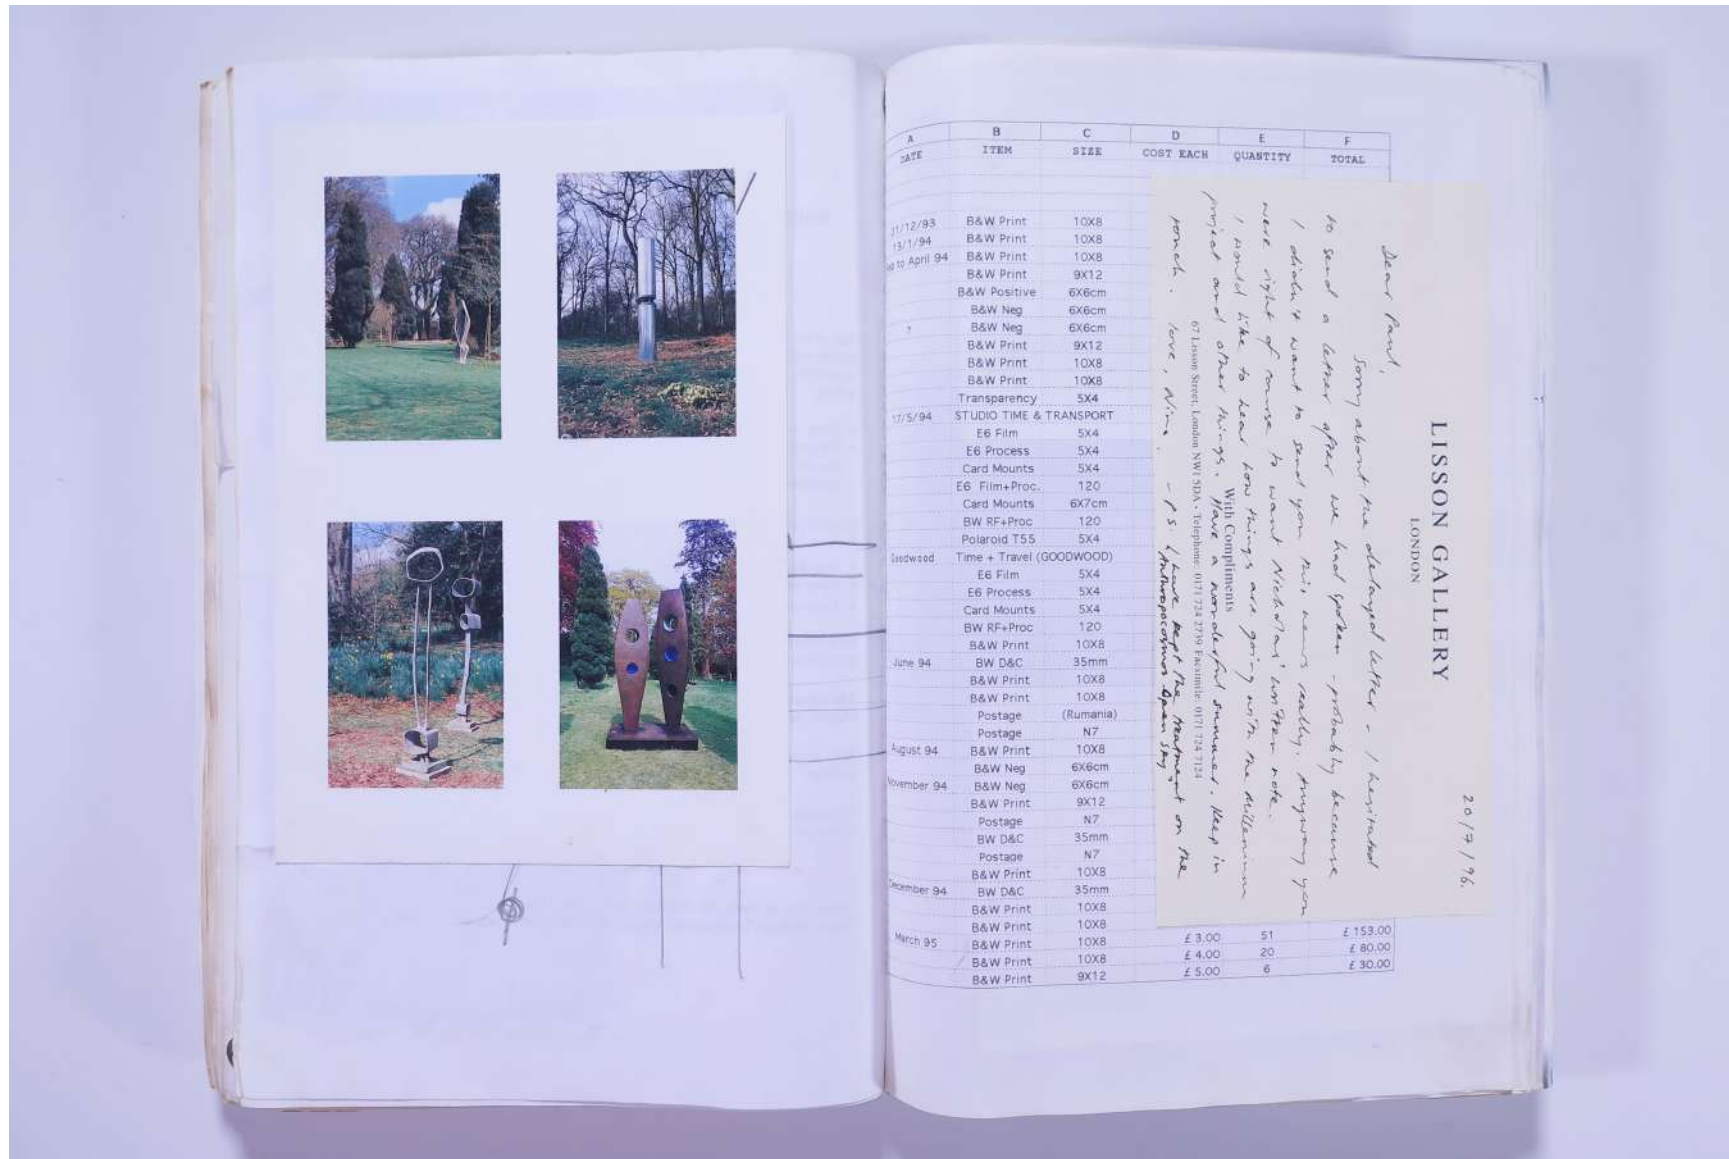 A B C D E F
DATE ITEM SIZE COST EACH QUANTITY TOTAL
B&W Print 10X8
13/1/94 B&W Print 10X8
to April 94 B&W Print 10X8
B&W Print 9X12
B&W Positive 6X6cm
B&W Neg 6X6cm
? B&W Neg 6X6cm
B&W Print 9X12
B&W Print 10X8
B&W Print 10X8
Transparency 5X4
17/5/94 STUDIO TIME & TRANSPORT
E6 Film 5X4
E6 Process 5X4
Card Mounts 5X4
E6 Film+Proc. 120
Card Mounts 6X7cm
BW RF+Proc 120
Polaroid T55 5X4
Goodwood Time + Travel (GOODWOOD)
E6 Film 5X4
E6 Process 5X4
Card Mounts 5X4
BW RF+Proc 120
B&W Print 10X8
June 94 BW D&C 35mm
B&W Print 10X8
B&W Print 10X8
Postage (Rumania)
Postage N7
August 94 B&W Print 10X8
B&W Neg 6X6cm
November 94 B&W Neg 6X6cm
B&W Print 9X12
Postage N7
BW D&C 35mm
Postage N7
B&W Print 10X8
December 94 BW D&C 35mm
B&W Print 10X8
B&W Print 10X8
March 95 B&W Print 10X8 £ 3.00 51 £ 153.00
B&W Print 10X8 £ 4.00 20 £ 80.00
B&W Print 9X12 £ 5.00 6 £ 30.00
20/7/96.
LISSON GALLERY
LONDON
Dear Paul,
Sorry about the delayed letter - I hesitated
to send a letter after we had spoken - probably because
I didn't want to send you this news really. Anyway you
were right of course to want Nicholas' written note.
I would like to hear how things are going with the Millennium
With Compliments
project and other things. Have a wonderful summer. Keep in
67 Lisson Street, London NW1 5DA • Telephone: 0171 724 2739 Facsimile: 0171 724 7124
touch. love, - PS. I have kept the treatment on the
Anthropocosmos Open Sky